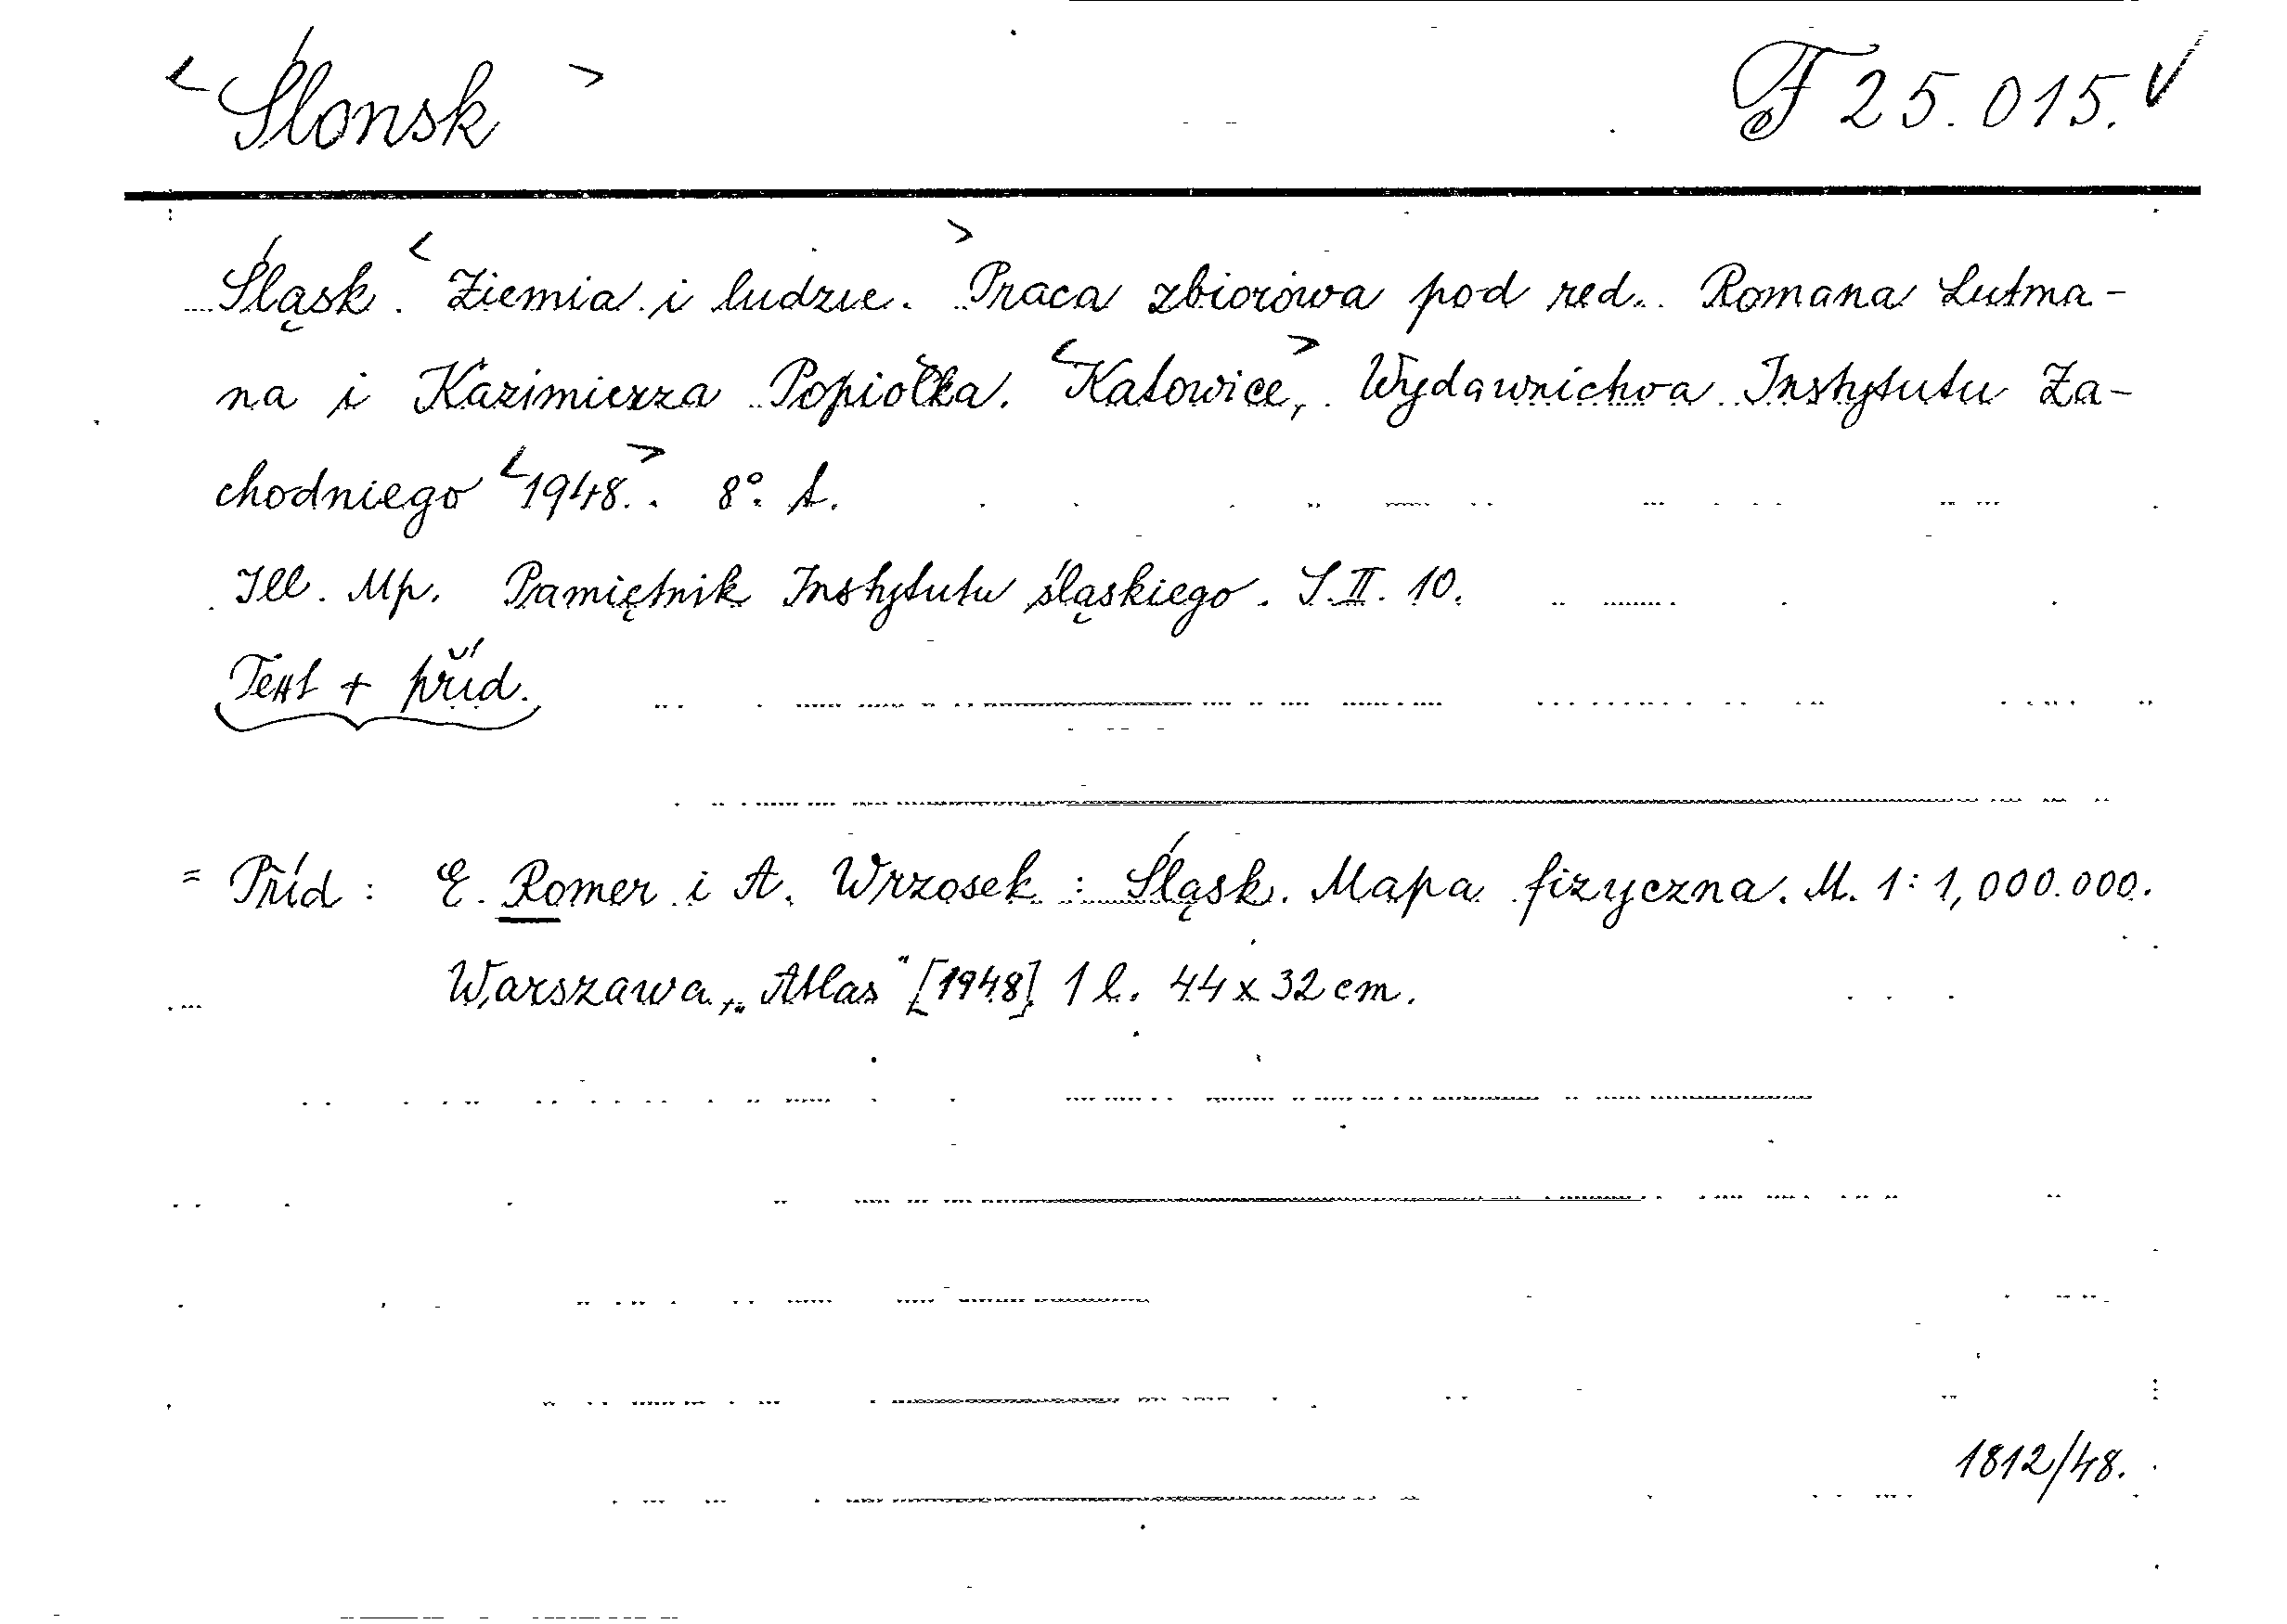 <Ślonsk> F 25.015.✓
Śląsk. <Ziemia i ludzie.> Praca zbiorowa pod red. Romana Lutma-
na i Kazimierza Popiołka. <Katowice,> Wydawnictwa Instytutu Za-
chodniego <1948.> 8°. A.
Ill. Mp. Pamiętnik Instytutu śląskiego. S.II. 10.
Text + příd.
= Príd: E. Romer i A. Wrzosek: Śląsk. Mapa fizyczna. M. 1:1,000.000.
Warszawa, „Atlas" [1948] 1 l. 44 x 32 cm.
1812/48.